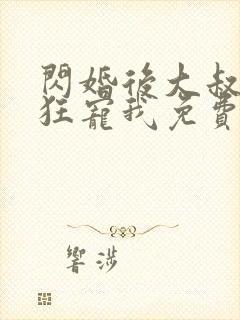 閃婚後大叔
狂寵我免費
響涉